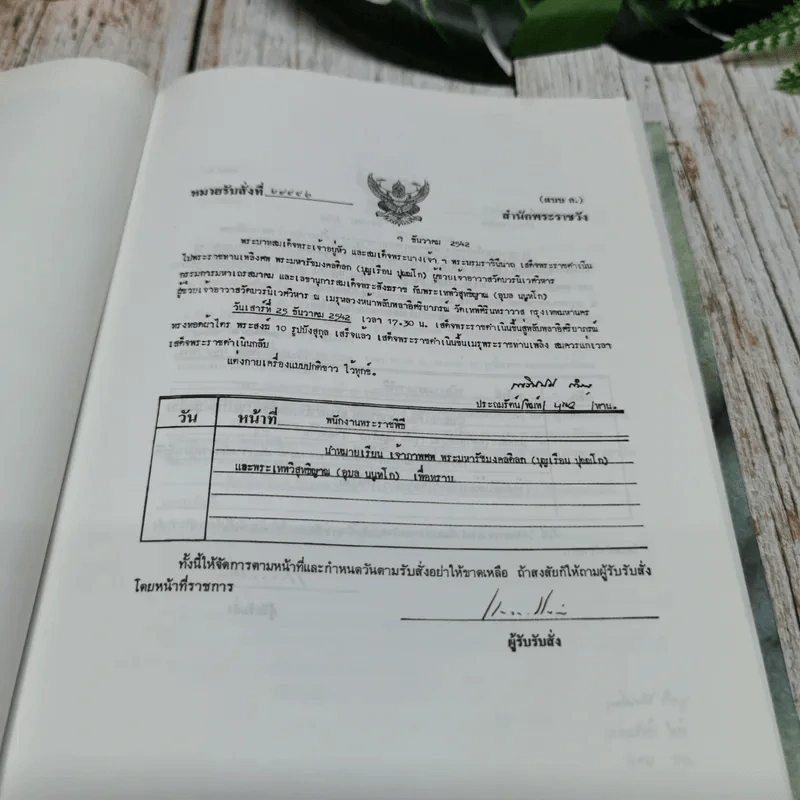 หมายรับสั่งที่
(แบบ ก.)
สำนักพระราชวัง
๗ ธันวาคม 2542
พระบาทสมเด็จพระเจ้าอยู่หัว และสมเด็จพระนางเจ้า ฯ พระบรมราชินีนาถ เสด็จพระราชดำเนิน
ไปพระราชทานเพลิงศพ พระมหารัชมงคลดิลก (บุญเรือน ปุณฺณโก) ผู้ช่วยเจ้าอาวาสวัดบวรนิเวศวิหาร
กรรมการมหาเถรสมาคม และเลขานุการสมเด็จพระสังฆราช กับพระเทพวิสุทธิญาณ (อุบล นนฺทโก)
ผู้ช่วยเจ้าอาวาสวัดบวรนิเวศวิหาร ณ เมรุหลวงหน้าพลับพลาอิศริยาภรณ์ วัดเทพศิรินทราวาส กรุงเทพมหานคร
วันเสาร์ที่ 25 ธันวาคม 2542 เวลา 17.30 น. เสด็จพระราชดำเนินขึ้นสู่พลับพลาอิศริยาภรณ์
ทรงทอดผ้าไตร พระสงฆ์ 10 รูปบังสุกุล เสร็จแล้ว เสด็จพระราชดำเนินขึ้นเมรุพระราชทานเพลิง สมควรแก่เวลา
เสด็จพระราชดำเนินกลับ
แต่งกายเครื่องแบบปกติขาว ไว้ทุกข์.
ประถมรัตน์/พิมพ์/ /ทาน.
วัน หน้าที่ พนักงานพระราชพิธี
นำหมายเรียน เจ้าภาพศพ พระมหารัชมงคลดิลก (บุญเรือน ปุณฺณโก)
และพระเทพวิสุทธิญาณ (อุบล นนฺทโก) เพื่อทราบ
ทั้งนี้ให้จัดการตามหน้าที่และกำหนดวันตามรับสั่งอย่าให้ขาดเหลือ ถ้าสงสัยก็ให้ถามผู้รับรับสั่ง
โดยหน้าที่ราชการ
ผู้รับรับสั่ง